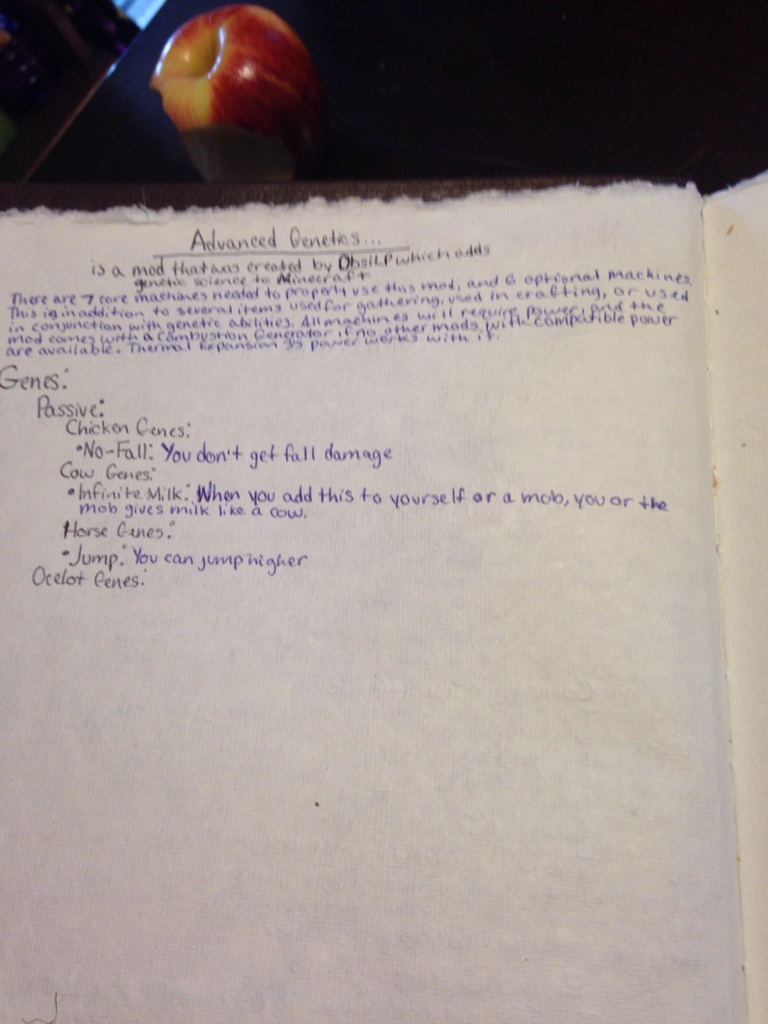 Advanced Genetics...
is a mod that was created by ObsiLP which adds
genetic science to Minecraft
There are 7 core machines needed to properly use this mod, and 6 optional machines.
This is in addition to several items used for gathering, used in crafting, or used
in conjunction with genetic abilities. All machines will require power, and the
mod comes with a Combustion Generator if no other mods with compatible power
are available. Thermal Expansion 3's power works with it.
Genes:
Passive:
Chicken Genes:
•No-Fall: You don't get fall damage
Cow Genes:
•Infinite Milk: When you add this to yourself or a mob, you or the
mob gives milk like a cow.
Horse Genes:
•Jump: You can jump higher
Ocelot Genes: